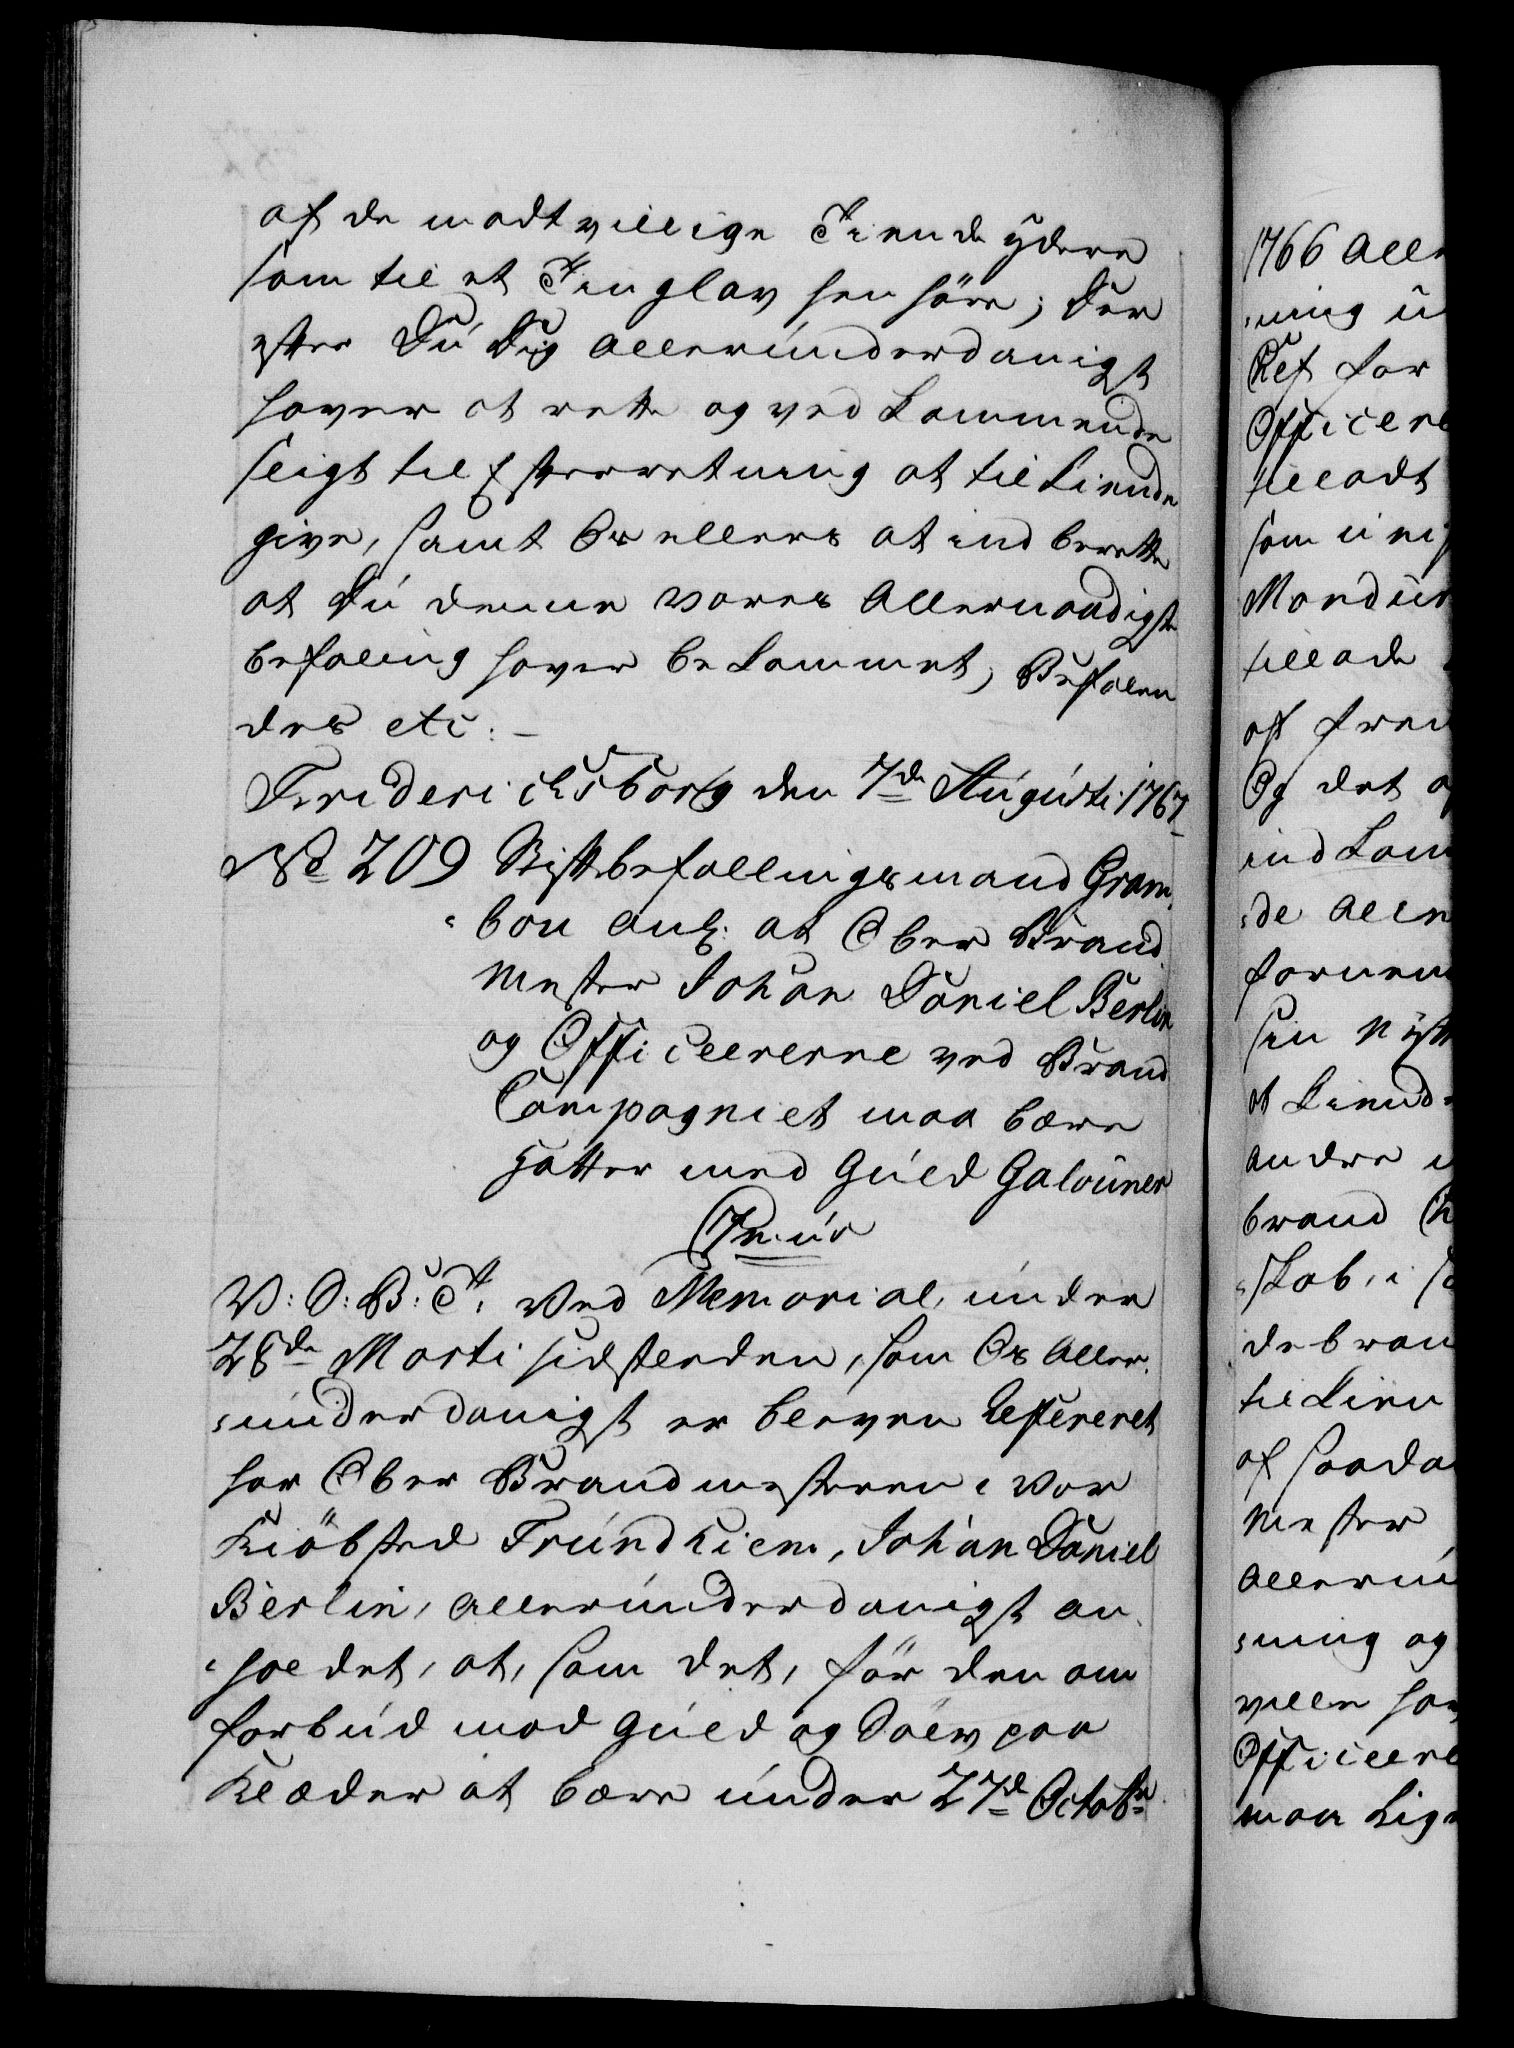 af de modtvillige Tiende ydere
som til et Tinglav henhöre; Der
efter Du Dig allerunderdanigst
haver at rette og vedkommende
sligt til Efterretning at tilkiende
give, samt Os ellers at indberette
at Du denne vores Allernaadigste
befaling haver bekommet, Befalen
des etc: –
Friderichsborg den 7de Augusti 1767
No 209 Stiftbefallingsmand Gram,
bou anl: at Ober Brand
Mester Johan Daniel Berlin
og Officeererne ved Brand
Compagniet maa bære
Hatter med Guld Galouner
V: S: B: T: Ved Memorial, under
28de Marti sidstleden, som Os aller,
underdanigst er bleven Refereret
har Ober Brandmesteren i vor
Kiöbsted Trundhiem, Johan Daniel
Berlin, allerunderdanigst an,
holdet, at, som det, för den om
forbud mod Guld og Sölv paa
Klæder at bære under 27de Octobr
1766 Alle
ning u
Ref for
Officere
tilladt
som u
Mondur
tillade
af
Og det
indkom
de alle
fornem
sin
at kiende
andre
brand
skab, i
de bran
tilkien
af saada
Mester
alleru
ning og
ville ha
Officeere
maa lige